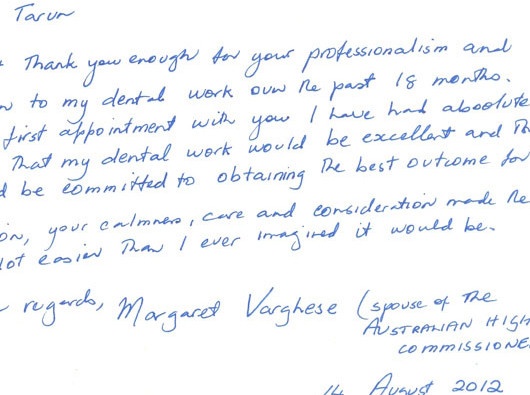 Tarun
Thank you enough for your professionalism and
to my dental work over the past 18 months.
first appointment with you I have had absolute
That my dental work would be excellent and
be committed to obtaining the best outcome for
your calmness, care and consideration made the
lot easier than I ever imagined it would be.
regards, Margaret Varghese (spouse of the
AUSTRALIAN HIGH
COMMISSIONE
14 August 2012